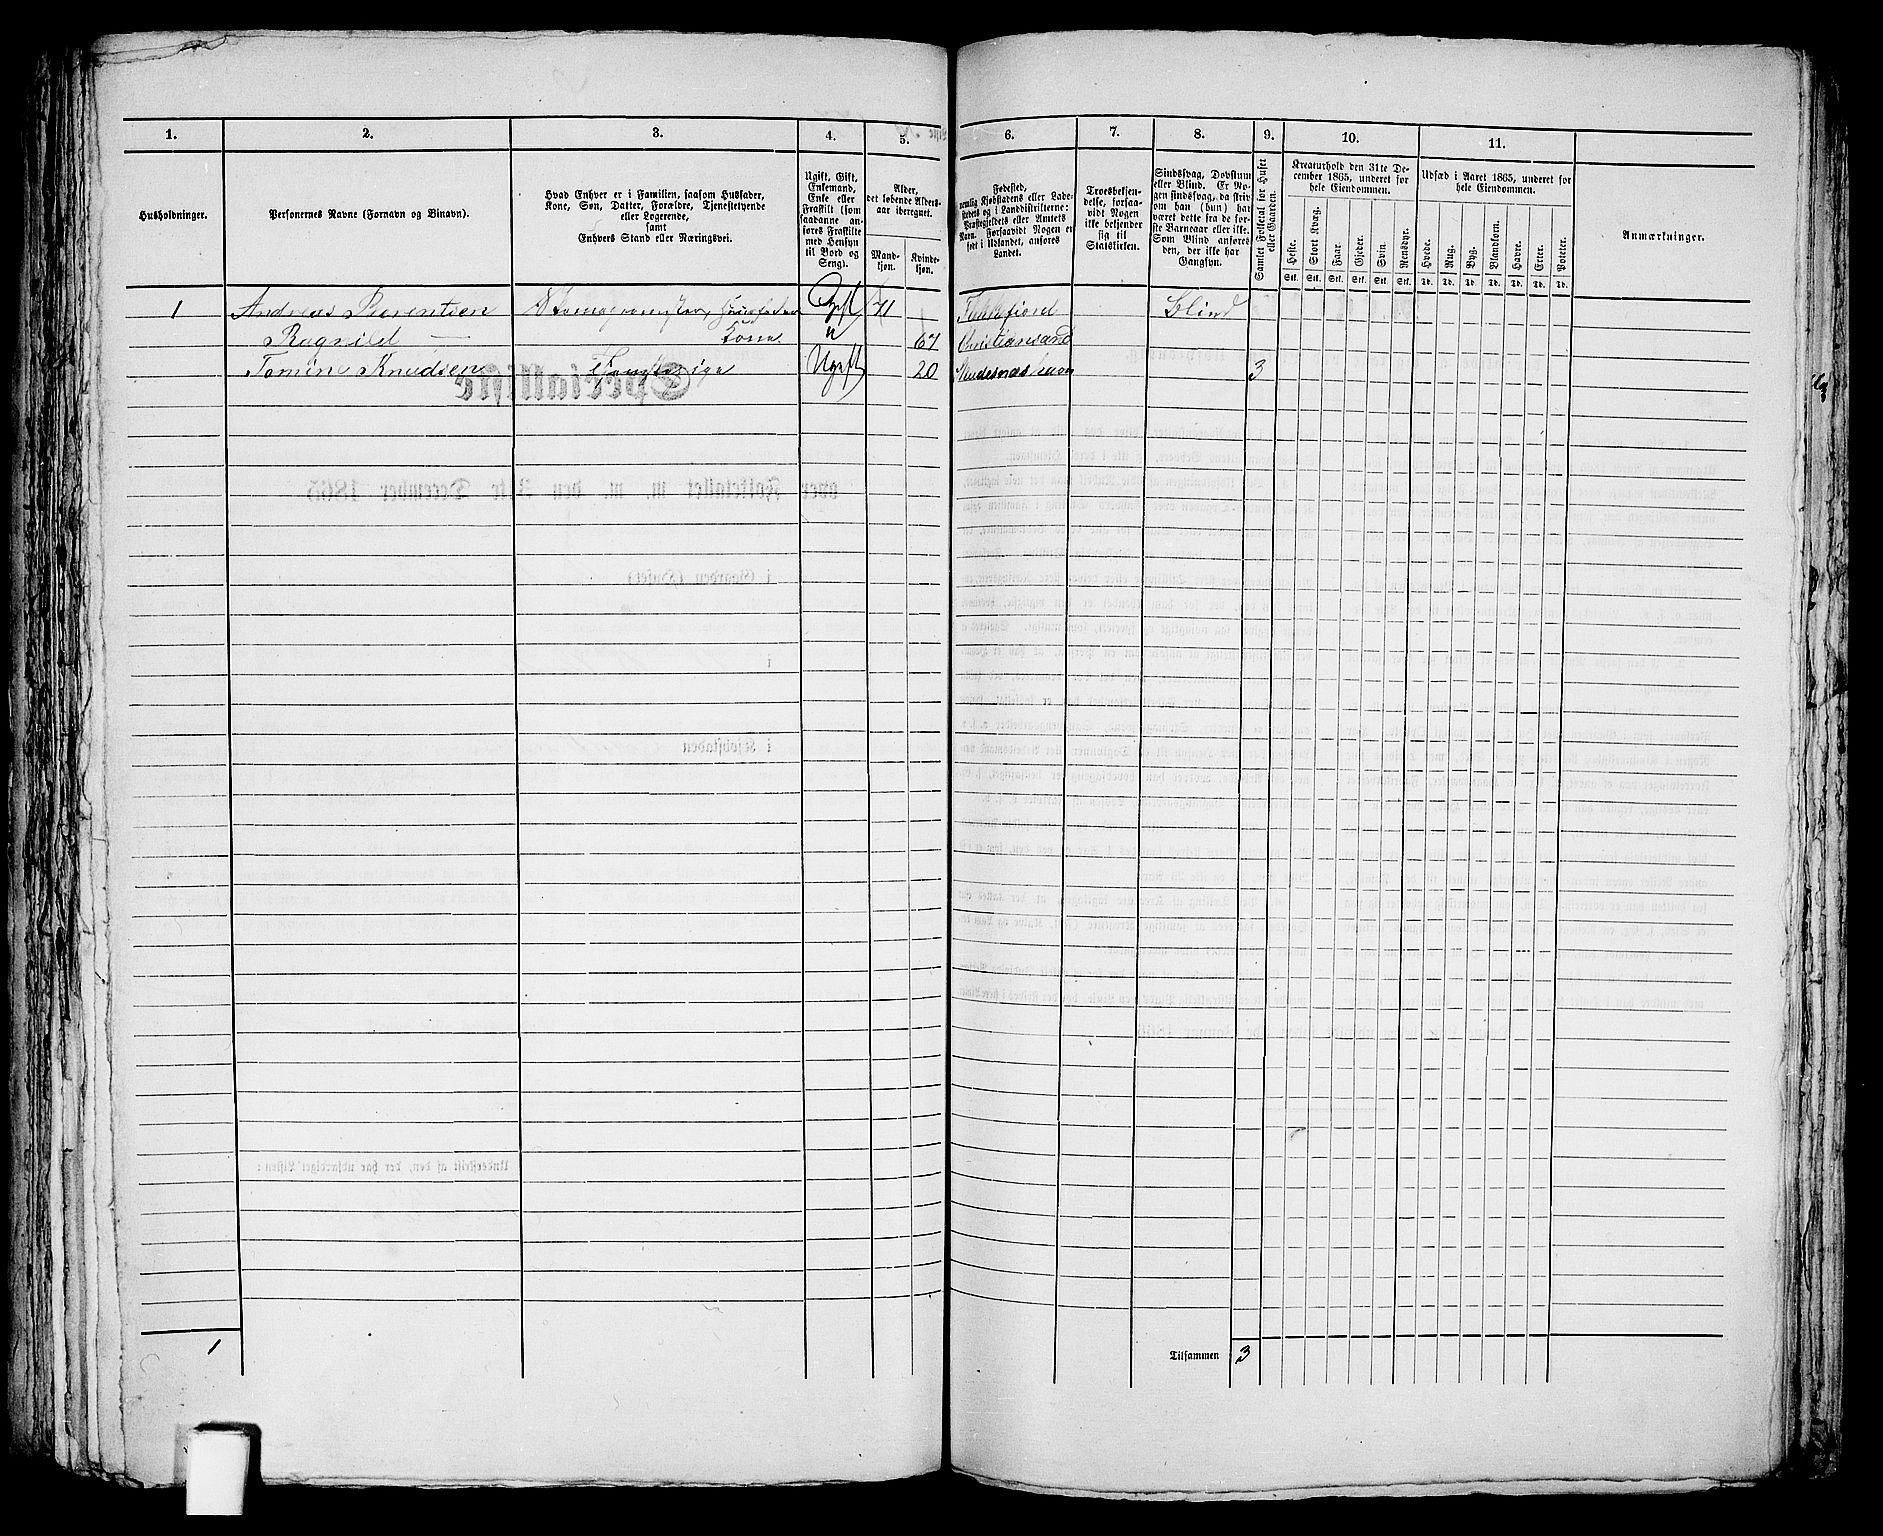 1.
2.
3.
4.
5.
6.
7.
8.
9.
10.
11.
Husholdninger.
Personernes Navne (Fornavn og Binavn).
Hvad Enhver er i Familien, saasom Husfader,
Kone, Søn, Datter, Forældre, Tjenestetyende
eller Logerende,
samt
Enhvers Stand eller Næringsvei.
Ugift, Gift,
Enkemand,
Enke eller
Fraskilt (som
saadanne an-
føres Fraskilte
med Hensyn
til Bord og
Seng).
Alder,
det løbende Alders-
aar iberegnet.
Mand-
kjøn.
Kvinde-
kjøn.
Fødested,
nemlig Kjøbstadens eller Lade-
stedets og i Landdistrikterne:
Præstegjeldets eller Amtets
Navn. Forsaavidt Nogen er
født i Udlandet, anføres
Landet.
Troesbekjen-
delse, forsaa-
vidt Nogen
ikke bekjender
sig til
Statskirken.
Sindssvag, Døvstum
eller Blind. Er No-
gen sindssvag, da skriv
om han (hun) har
været dette fra de før-
ste Barneaar eller ikke.
Som Blind anføres
den, der ikke har
Gangsyn.
Samlet Folketal for Huset
eller Gaarden.
Kreaturhold den 31te De-
cember 1865, underet for
hele Eiendommen.
Heste.
Stort Kvæg.
Faar.
Gjeder.
Svin.
Rensdyr.
Stk. Stk. Stk. Stk. Stk. Stk.
Udsæd i Aaret 1865, underet for
hele Eiendommen.
Hvede.
Rug.
Byg.
Blandkorn.
Havre.
Erter.
Poteter.
Td. Td. Td. Td. Td. Td. Td.
Anmærkninger.
1 Andreas Berentsen Skomagermester, Husfader Gift 71 Blind
Ragnild — Kone " 67 Christiansand
Tomine Knudsen Ugift 20 Skudesnæshavn 3
1
Tilsammen 3